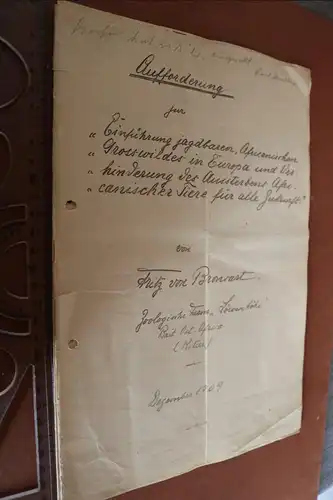 Aufforderung
zur
„Einführung jagdbaren, Afrikanischen
„Grosswildes in Europa und Ver
„hinderung des Aussterbens Afri
„canischer Tiere für alle Zukunft."
von
Fritz von Bronsart
Zoologische Farm
Ost Africa
Dezember 1909